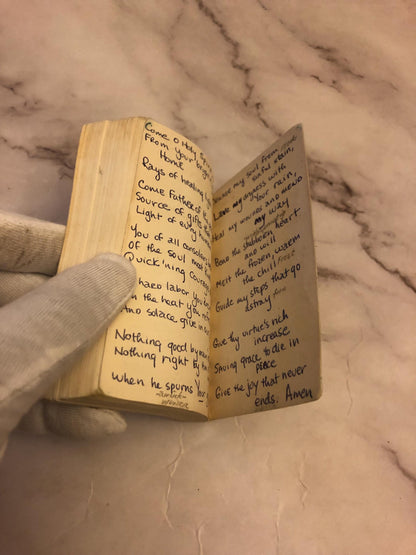 Come O Holy
From your
Home
Rays of healing
Come Father of
Source of gifts
Light of every
You of all
of the soul
Quick'ning
labour you
the heat you
And solace give in
Nothing good by
Nothing right by
When he spurns Your
my soul from
stain,
my dryness with
Your rain,
Heal my wounds and mend
my way
Bend the stubborn heart
and will
Melt the frozen, warm
the chill
Guide my steps that go
astray
Give thy virtue's rich
increase
Saving grace to die in
peace
Give the joy that never
ends. Amen